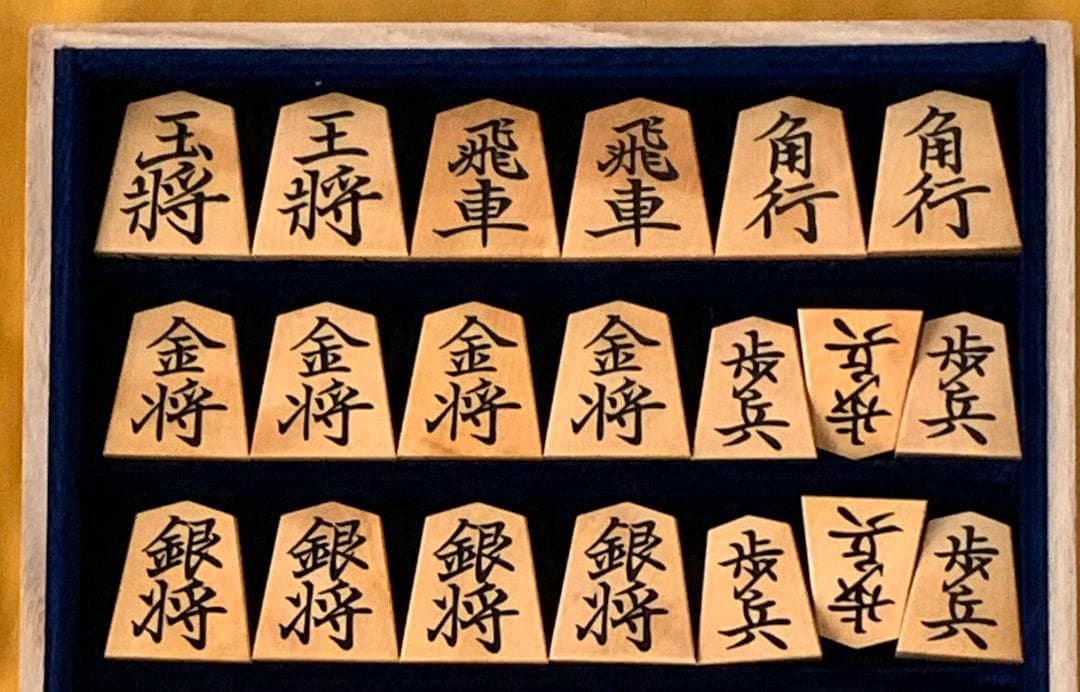 玉將 王將 飛車 飛車 角行 角行
金将 金将 金将 金将 歩兵 歩兵 歩兵
銀将 銀将 銀将 銀将 歩兵 歩兵 歩兵